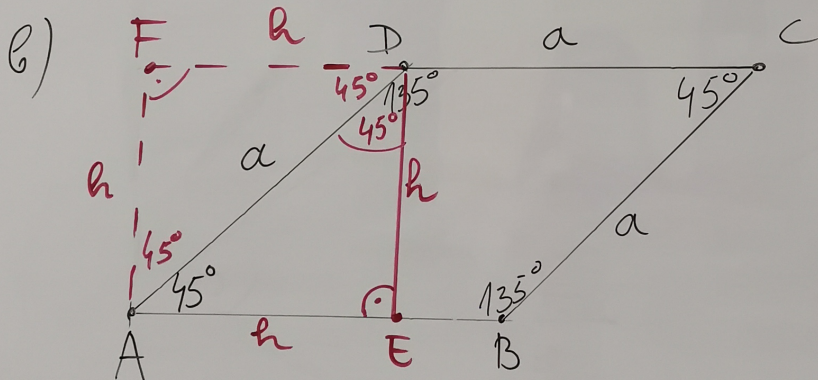 в)
F h D a C
45° 135° 45°
45°
a
h h
a
45°
45° 135°
A h E B